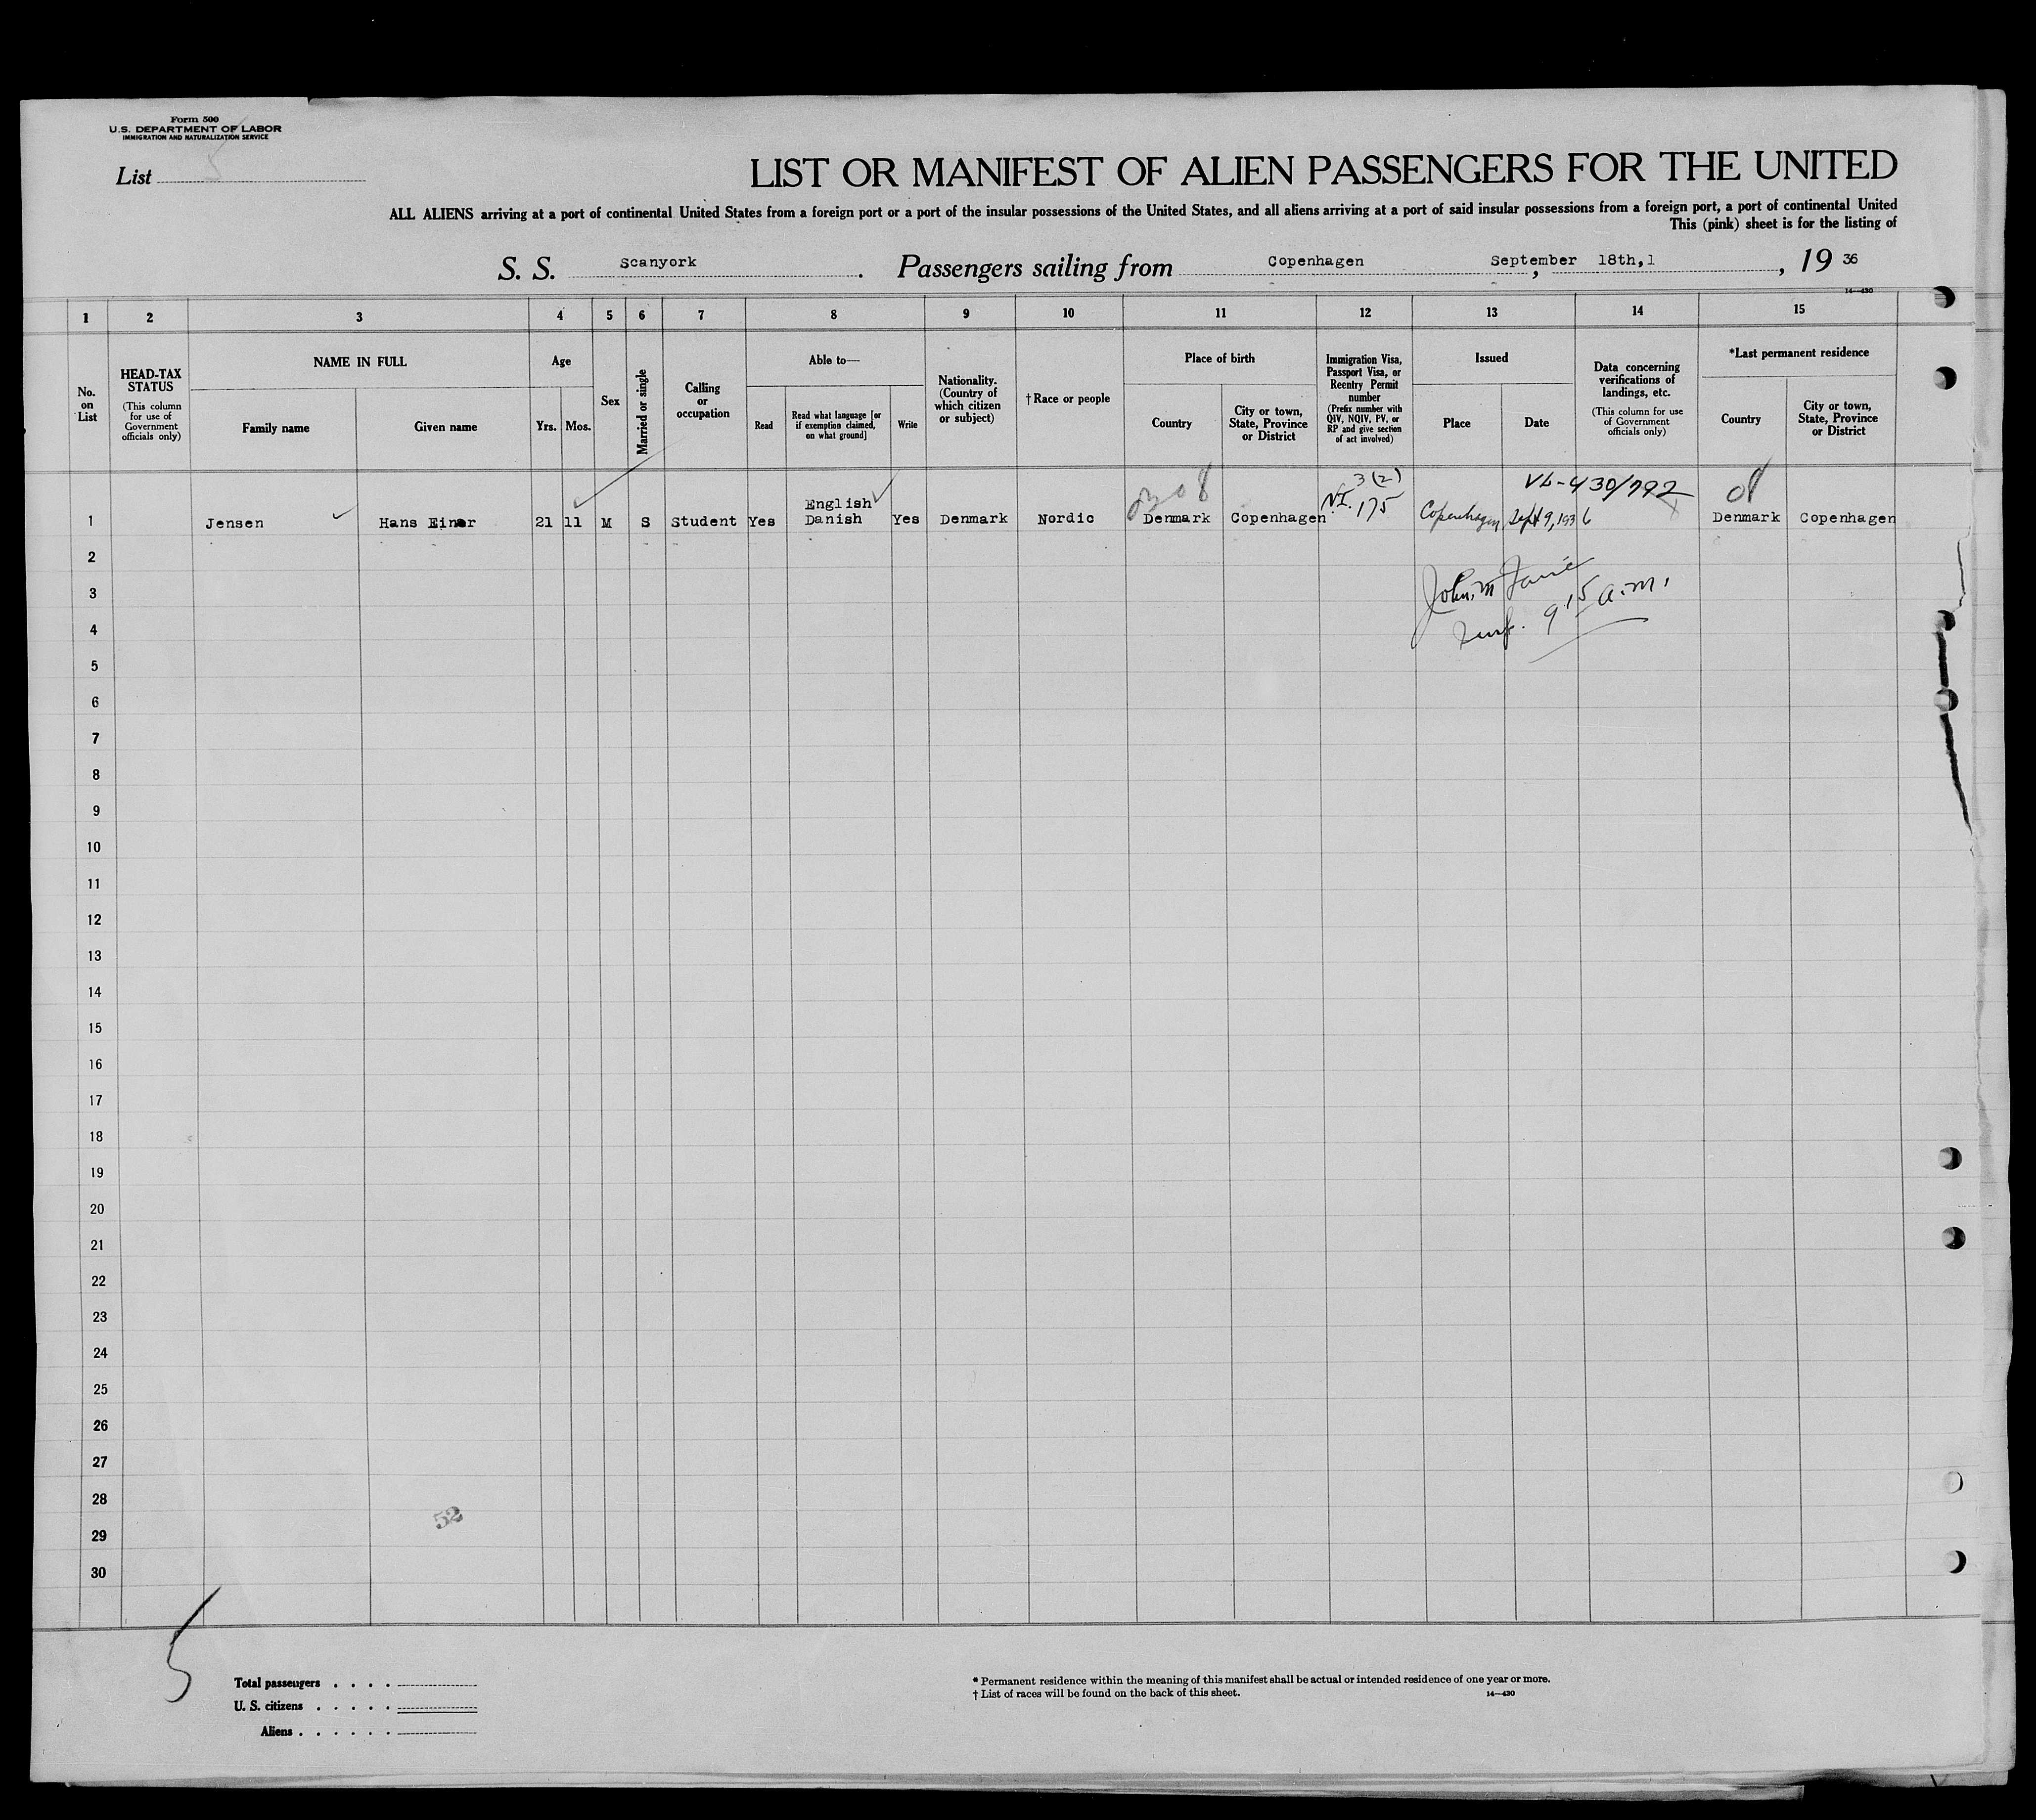 Form 500
U.S. DEPARTMENT OF LABOR
IMMIGRATION AND NATURALIZATION SERVICE
List 5
LIST OR MANIFEST OF ALIEN PASSENGERS FOR THE UNITED
ALL ALIENS arriving at a port of continental United States from a foreign port or a port of the insular possessions of the United States, and all aliens arriving at a port of said insular possessions from a foreign port, a port of continental United
This (pink) sheet is for the listing of
S. S. Scanyork. Passengers sailing from Copenhagen, September 18th,1, 19 36
14—430
1 2 3 4 5 6 7 8 9 10 11 12 13 14 15
No. on List
HEAD-TAX STATUS (This column for use of Government officials only)
NAME IN FULL
Family name
Given name
Age
Yrs.
Mos.
Sex
Married or single
Calling or occupation
Able to—
Read
Read what language [or if exemption claimed, on what ground]
Write
Nationality. (Country of which citizen or subject)
†Race or people
Place of birth
Country
City or town, State, Province or District
Immigration Visa, Passport Visa, or Reentry Permit number (Prefix number with QIV, NQIV, PV, or RP and give section of act involved)
Issued
Place
Date
Data concerning verifications of landings, etc. (This column for use of Government officials only)
*Last permanent residence
Country
City or town, State, Province or District
3(2)
VL-430/792
English
1 Jensen Hans Einar 21 11 M S Student Yes Danish Yes Denmark Nordic Denmark Copenhagen 175 Copenhagen Sept 9, 1936 Denmark Copenhagen
2
3 John M
4 9 15 a.m.
5
6
7
8
9
10
11
12
13
14
15
16
17
18
19
20
21
22
23
24
25
26
27
28
29
30
52
5
Total passengers . . . .
U. S. citizens . . . . .
Aliens . . . . . .
* Permanent residence within the meaning of this manifest shall be actual or intended residence of one year or more.
† List of races will be found on the back of this sheet.
14—430